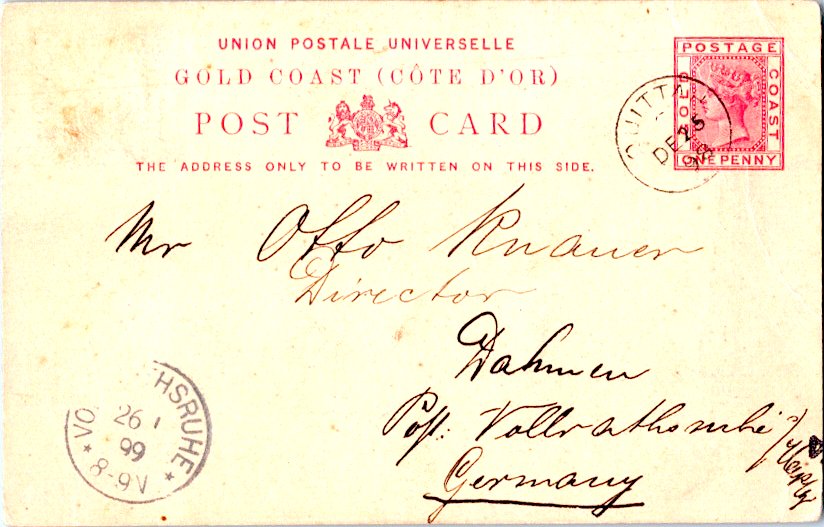 UNION POSTALE UNIVERSELLE
GOLD COAST (CÔTE D'OR)
POST CARD
THE ADDRESS ONLY TO BE WRITTEN ON THIS SIDE.
POSTAGE
GOLD
COAST
ONE PENNY
QUITTAH
DE 25
98
Mr Otto Knauer
Director
Dahmen
Post: Vollrathsruhe
Germany
VO HSRUHE
26 1
99
8-9V